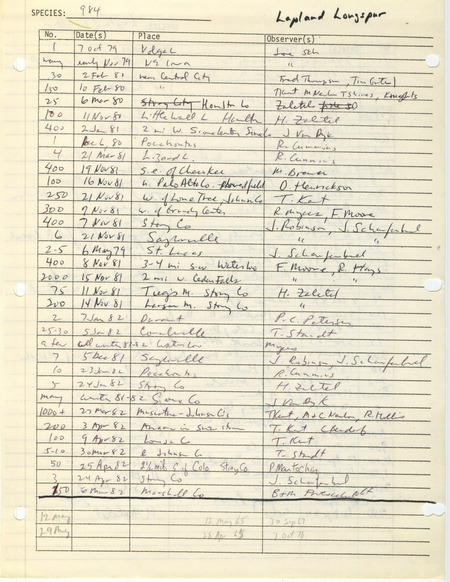 SPECIES: 984 Lapland Longspur
No. Date(s) Place Observer(s)
1 7 Oct 79 Volga L
many early Nov 79 NE Iowa "
30 2 Feb 81 near Central City Fred Thompson, Tim
150 10 Feb 80 " TKent
25 6 Mar 80 Story City Hamilton Co Zaletel
100 11 Nov 81 Little Wall L Hamilton H. Zaletel
400 2 Jan 81 2 mi W. Sioux Center Sioux Co J Van Dyk
1 Dec 6, 80 Pocahontas R. Cummins
4 21 Mar 81 Lizard L. R. Cummins
400 19 Nov 81 S.E. of Cherokee M. Brewer
100 16 Nov 81 n. Palo Alto Co. D. Henrickson
250 21 Nov 81 W. of Lone Tree Johnson Co T. Kent
300 9 Nov 81 w. of Grundy Center R. Myers, F. Moore
400 7 Nov 81 Story Co J. Robinson, J. Schaufenbuel
6 21 Nov 81 Saylorville " "
2-5 6 May 79 St. Lucas J. Schaufenbuel
400 8 Nov 81 3-4 mi S.W. Waterloo F. Moore, R Hays
2000 15 Nov 81 2 mi W Cedar Falls " "
75 11 Nov 81 M. Story Co H. Zaletel
200 14 Nov 81 M. Story Co "
2 7 Jan 82 Durant P. C. Petersen
25-30 5 Jan 82 Coralville T. Staudt
a few all winter 81-82 Waterloo Myers
7 5 Dec 81 Saylorville J Robinson, J. Schaufenbuel
10 23 Jan 82 Pocahontas R. Cummins
5 24 Jan 82 Story Co H. Zaletel
many winter 81-82 Sioux Co J Van Dyk
1000+ 27 Mar 82 Muscatine-Johnson Co's TKent, A+C Newlon, R. Hollis
200 3 Apr 82 Amana in snow storm T. Kent C Bendorf
100 9 Apr 82 Louisa Co T. Kent
5-10 30 Mar 82 E Johnson Co T. Staudt
50 25 Apr 82 2½ mi S of Colo Story Co P Martsching
3 24 Apr 82 Story Co J. Schaufenbuel
150 6 Mar 82 Marshall Co B+M
12 May 12 May 65 30 Sep 67
29 May 25 Apr 65 7 Oct 78